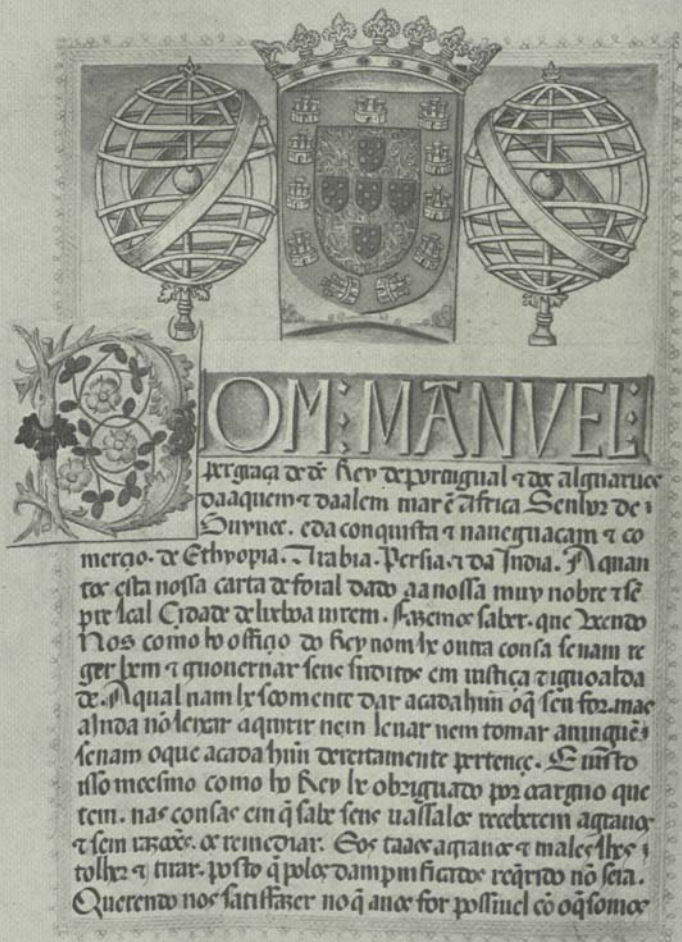 DOM: MANVEL:
per graça de dẽ Rey de portugual ⁊ dos alguarues
daaquem ⁊ daalem mar ẽ Africa Senhor de
Guynee. e da conquista ⁊ naueguaçam ⁊ co
merçio. de Ethyopia. Arabia. Persia. ⁊ da India. A quan
tos esta nossa carta de foral dado aa nossa muy nobre ⁊ sẽ
pre leal Cidade de lixboa uirem. fazemos saber. que Veendo
Nos como ho offiçio do Rey nom he outra cousa senam re
ger bem ⁊ guouernar seus suditos em iustiça ⁊ igualda
de. A qual nam he soomente dar a cada hũu o q̃ seu for. mas
ainda nõ leixar aquirir nem leuar nem tomar a ninguẽ
senam o que a cada hũu dereitamente pertençe. E uisto
isso meesmo como ho Rey he obriguado por carguo que
tem. nas cousas em q̃ sabe seus uassalos receberem agrauos
⁊ sem razoões. os remediar. Eos taaes agrauos ⁊ males lhes
tolher ⁊ tirar. posto q̃ polos dampnificados reqrido nõ seia.
Querendo nos satisfazer no q̃ a nos for possiuel cõ o q̃ somos